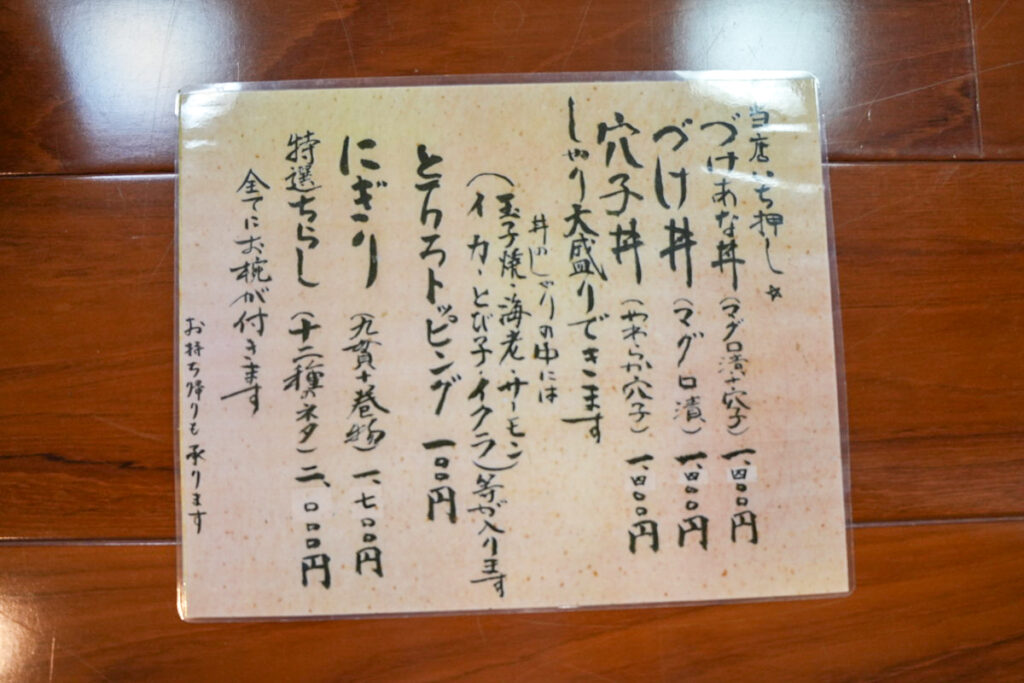 当店いち押し☆
づけあな丼（マグロ漬+穴子）一、四〇〇円
づけ丼（マグロ漬）一、四〇〇円
穴子丼（やわらか穴子）一、四〇〇円
しゃり大盛りできます
丼のしゃりの中には
（玉子焼・海老・サーモン
イカ・とび子・イクラ）等が入ります
とろろトッピング 一〇〇円
にぎり（九貫+巻物）一、七〇〇円
特選ちらし（十二種のネタ）二、〇〇〇円
全てにお椀が付きます
お持ち帰りも承ります